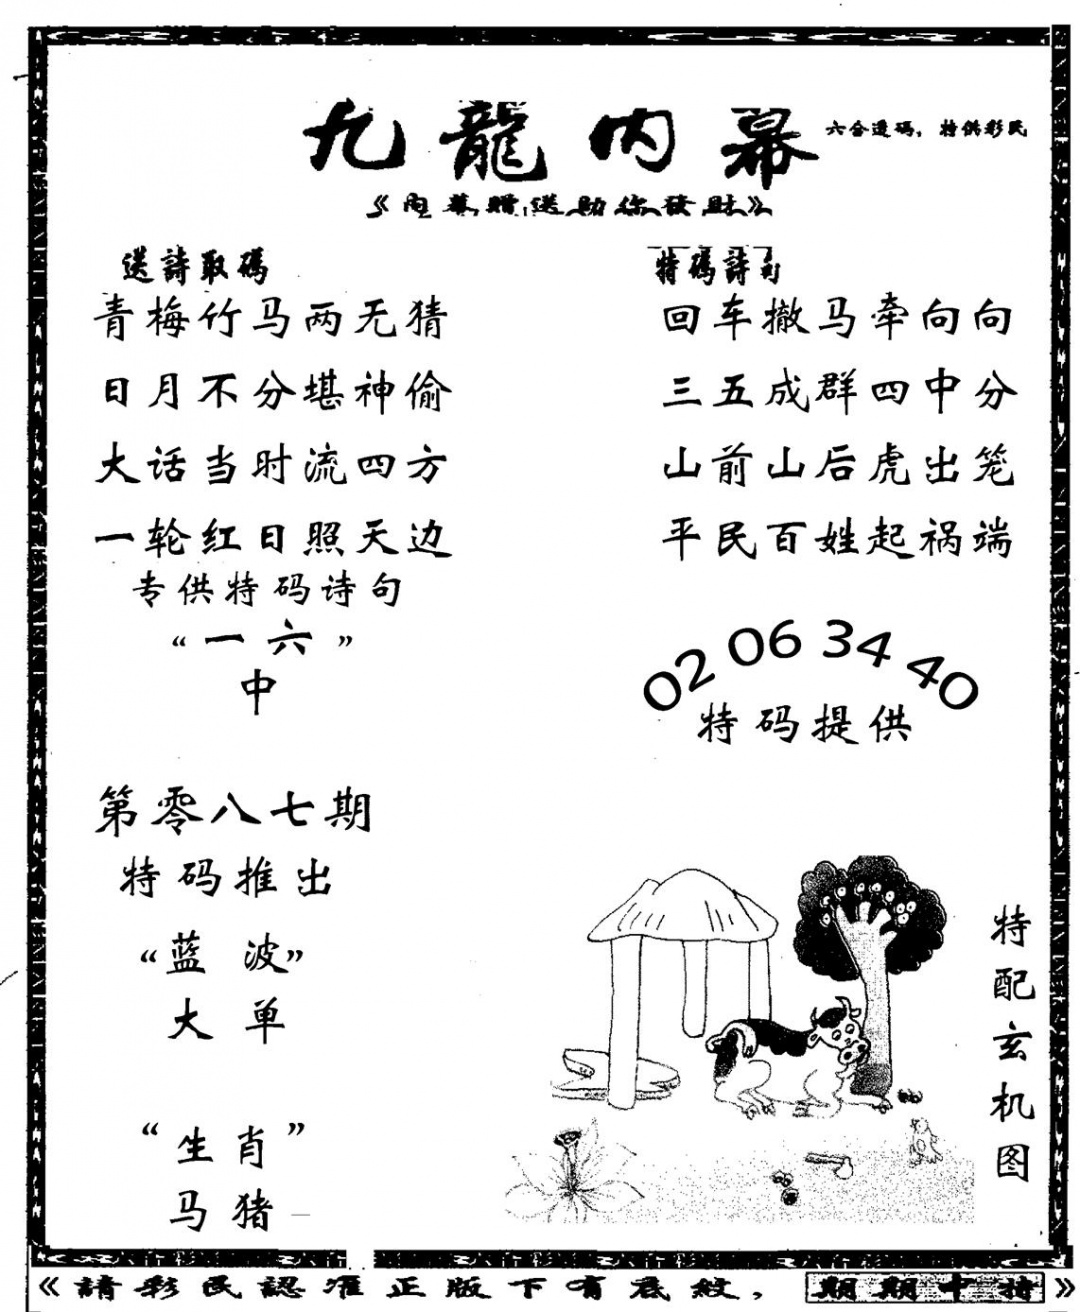 九龍内幕
六合透码，特供彩民
《内幕贈送助你發財》
送詩取碼
青梅竹马两无猜
日月不分堪神偷
大话当时流四方
一轮红日照天边
专供特码诗句
“一六”
中
特碼詩句
回车撤马牵向向
三五成群四中分
山前山后虎出笼
平民百姓起祸端
02 06 34 40
特码提供
第零八七期
特码推出
“蓝波”
大单
“生肖”
马猪
特配玄机图
《請彩民認准正版下有底紋，期期中特》